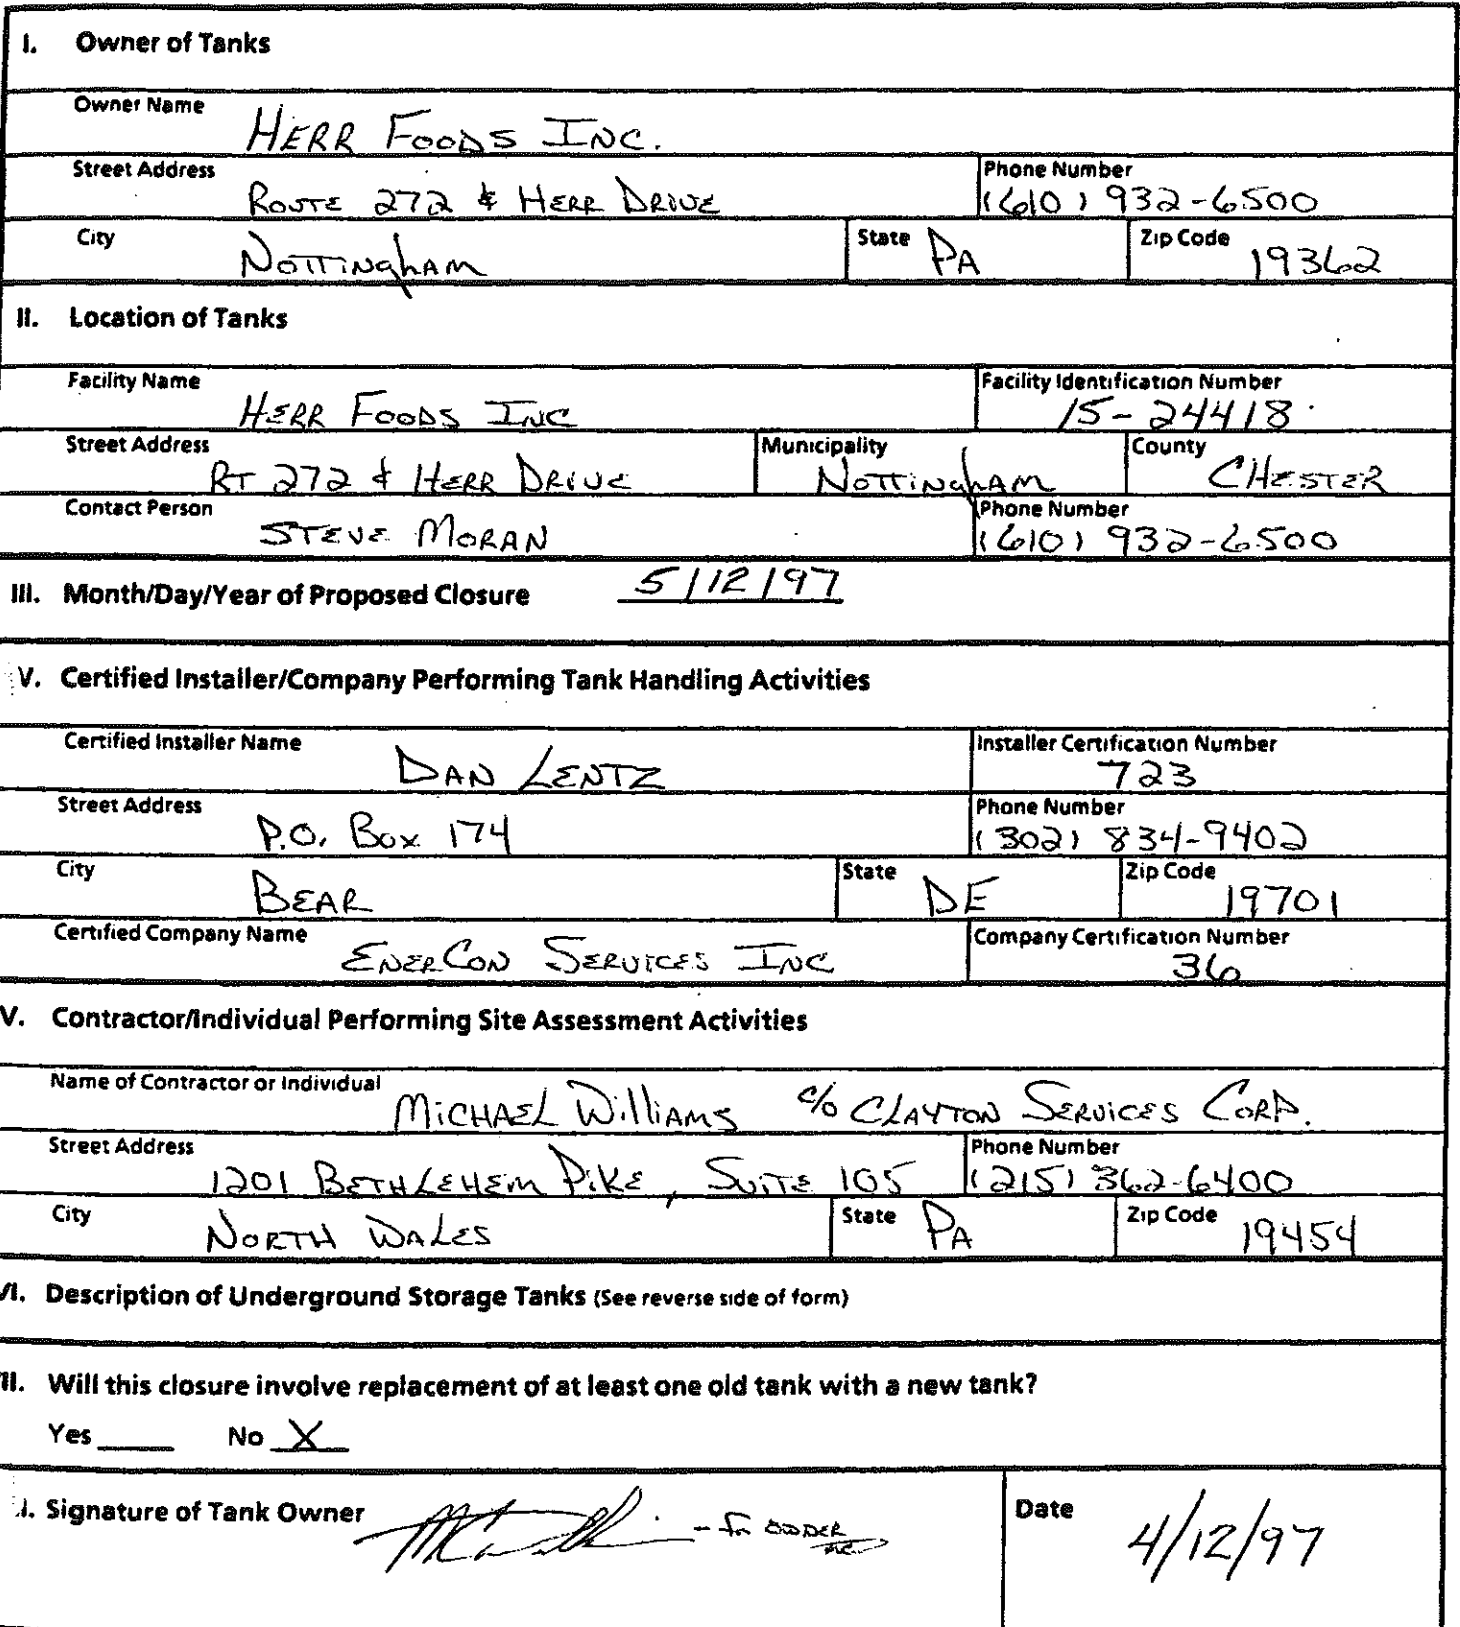 I. Owner of Tanks
Owner Name HERR FOODS INC.
Street Address ROUTE 272 & HERR DRIVE Phone Number (610) 932-6500
City NOTTINGHAM State PA Zip Code 19362
II. Location of Tanks
Facility Name HERR FOODS INC Facility Identification Number 15-24418
Street Address RT 272 & HERR DRIVE Municipality NOTTINGHAM County CHESTER
Contact Person STEVE MORAN Phone Number (610) 932-6500
III. Month/Day/Year of Proposed Closure 5/12/97
V. Certified Installer/Company Performing Tank Handling Activities
Certified Installer Name DAN LENTZ Installer Certification Number 723
Street Address P.O. Box 174 Phone Number (302) 834-9402
City BEAR State DE Zip Code 19701
Certified Company Name ENERCON SERVICES INC Company Certification Number 36
V. Contractor/Individual Performing Site Assessment Activities
Name of Contractor or Individual MICHAEL WILLIAMS c/o CLAYTON SERVICES CORP.
Street Address 1201 BETHLEHEM PIKE, SUITE 105 Phone Number (215) 362-6400
City NORTH WALES State PA Zip Code 19454
VI. Description of Underground Storage Tanks (See reverse side of form)
II. Will this closure involve replacement of at least one old tank with a new tank?
Yes ____ No X
I. Signature of Tank Owner - for Date 4/12/97